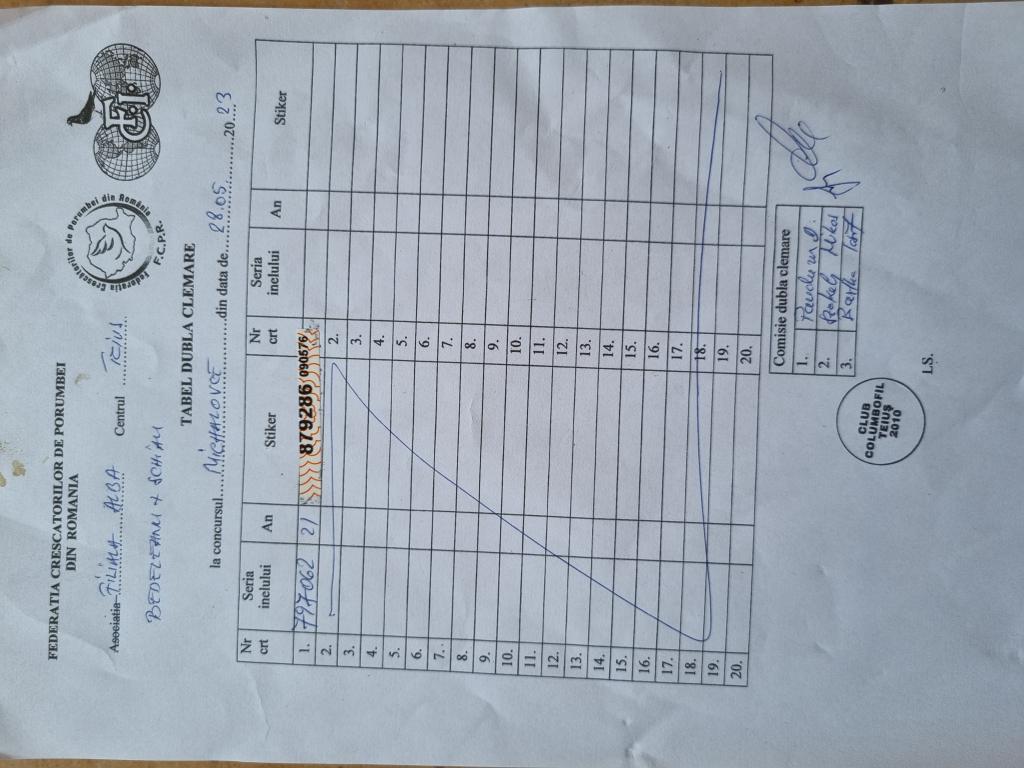 FEDERATIA CRESCATORILOR DE PORUMBEI
DIN ROMANIA
Federatia Crescatorilor de Porumbei din România
F.C.P.R.
FCI
Asociatia FILIALA ALBA Centrul TEIUS
BEDELEANU + SCHIAU
TABEL DUBLA CLEMARE
la concursul MICHALOVCE din data de 28.05 2023
Nr crt Seria inelului An Stiker Nr crt Seria inelului An Stiker
1. 797062 21 879286 090576
2. 2.
3. 3.
4. 4.
5. 5.
6. 6.
7. 7.
8. 8.
9. 9.
10. 10.
11. 11.
12. 12.
13. 13.
14. 14.
15. 15.
16. 16.
17. 17.
18. 18.
19. 19.
20. 20.
Comisie dubla clemare
1.
2.
3.
CLUB
COLUMBOFIL
TEIUȘ
2010
L.S.